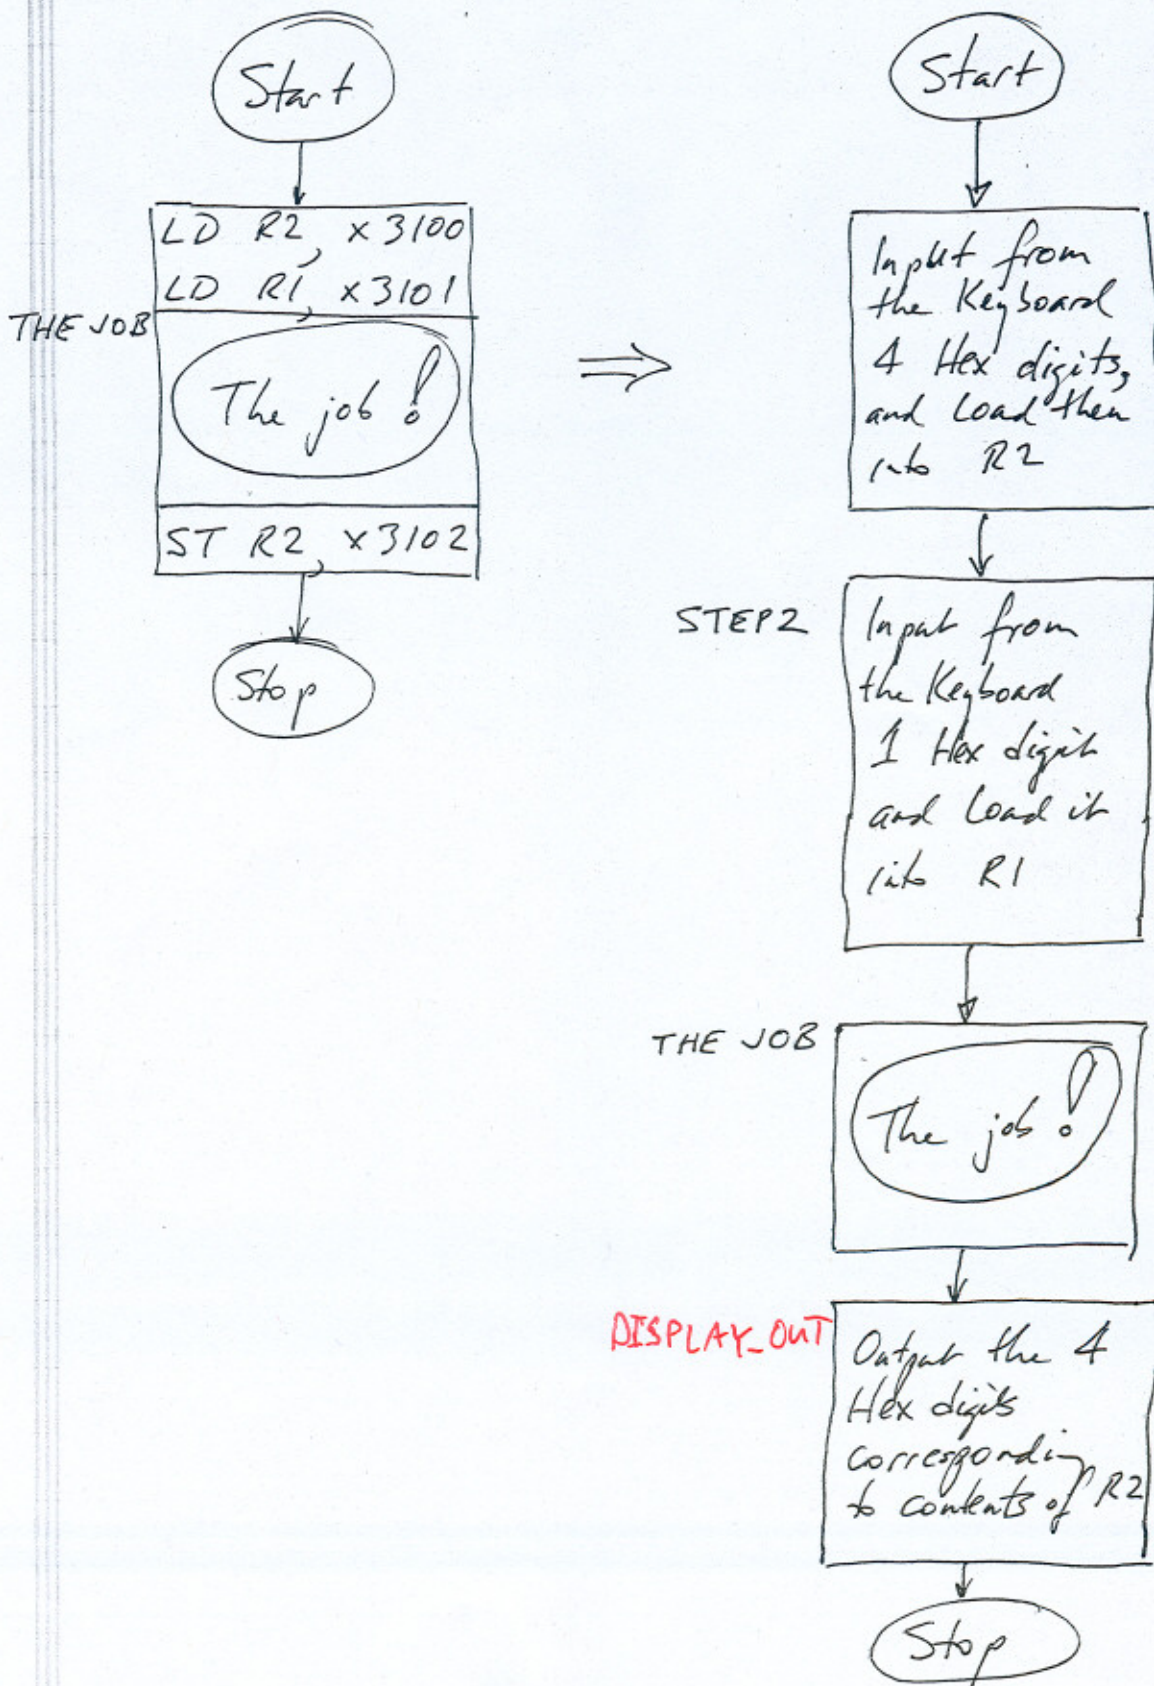 Start
LD R2, x3100
LD R1, x3101
THE JOB
The job!
ST R2, x3102
Stop
⇒
Start
Input from
the Keyboard
4 Hex digits,
and Load then
into R2
STEP2
Input from
the Keyboard
1 Hex digit
and Load it
into R1
THE JOB
The job!
DISPLAY_OUT
Output the 4
Hex digits
corresponding
to contents of R2
Stop